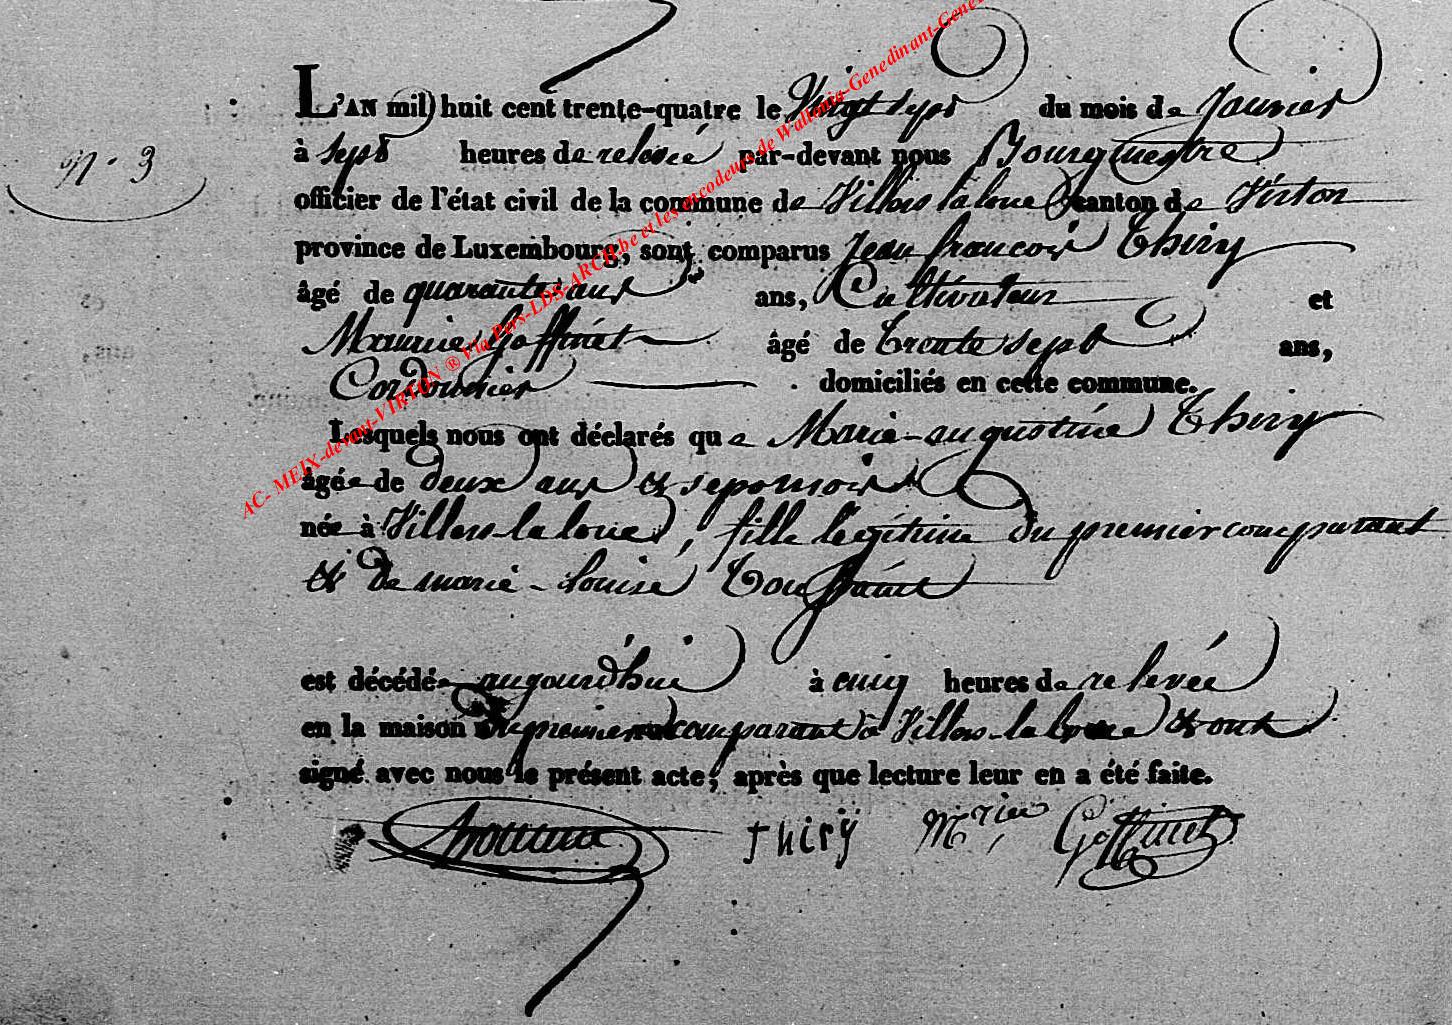 L'AN mil huit cent trente-quatre le Vingt sept du mois de Janvier
n.o 3
à sept heures de relevée par-devant nous Bourgmestre
officier de l'état civil de la commune de Villers la loue canton de Virton
province de Luxembourg, sont comparus Jean francois Thiry
âgé de quarante ans ans, Cultivateur et
Maurice Goffinet âgé de trente sept ans,
Cordonnier domiciliés en cette commune.
Lesquels nous ont déclarés que Marie-augustine Thiry
âgée de deux ans et sept mois
née à Villers-la loue, fille légitime du premier comparant
et de marie-louise Toussaint
est décédée aujourd'hui à cinq heures de relevée
en la maison du premier comparant à Villers-la loue et ont
signé avec nous le présent acte, après que lecture leur en a été faite.
Thirÿ Mrice Goffinet
AC- MEIX-devant-VIRTON ® Via Pers-LDS-ARCH.be et les encodeurs de Wallonia-Genedinant-Gene